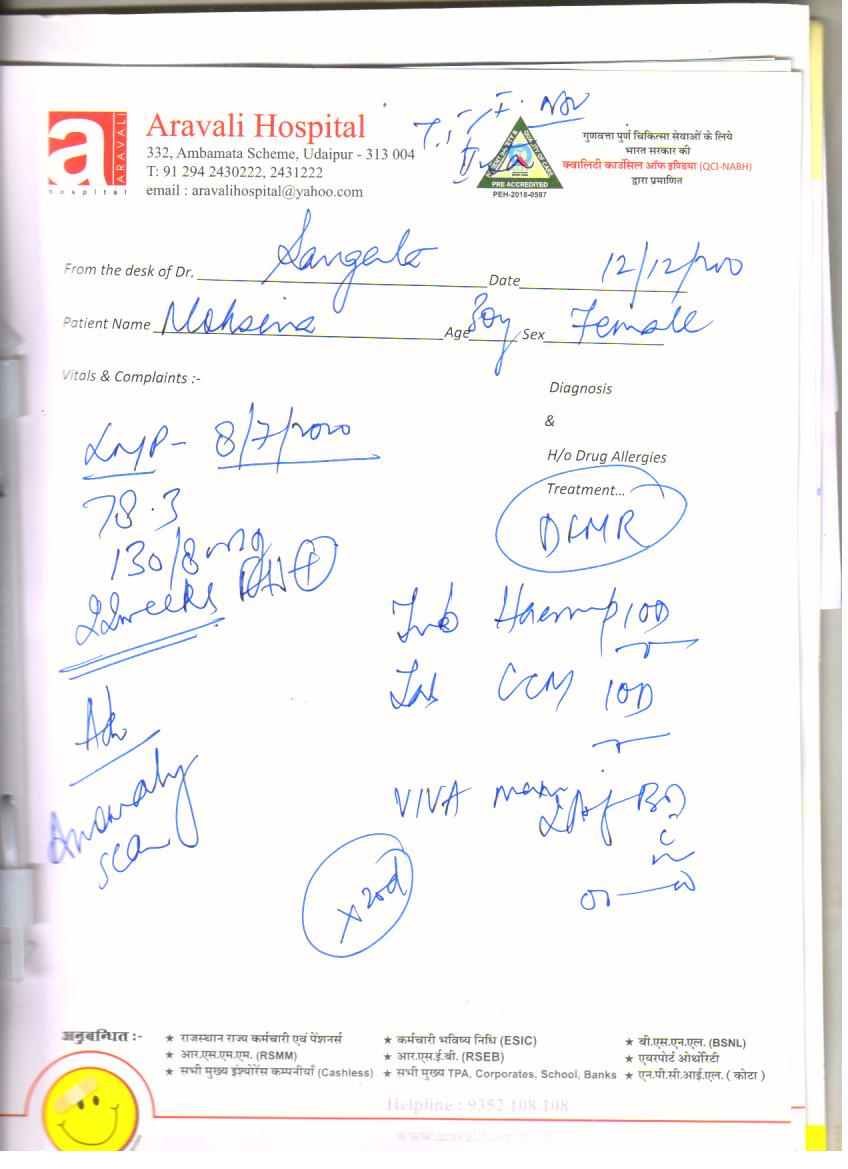 a
ARAVALI
hospital
Aravali Hospital
332, Ambamata Scheme, Udaipur - 313 004
T: 91 294 2430222, 2431222
email : aravalihospital@yahoo.com
PRE ACCREDITED
PEH-2018-0597
गुणवत्ता पुर्ण चिकित्सा सेवाओं के लिये
भारत सरकार की
क्वालिटि काउंसिल ऑफ इण्डिया (QCI-NABH)
द्वारा प्रमाणित
From the desk of Dr. Sangeeta Date 12/12/2020
Patient Name Mohsina Age 30y Sex Female
Vitals & Complaints :-
Diagnosis
&
H/o Drug Allergies
Treatment...
LMP - 8/7/2020
78.3
DFMR
130/8 mg
22 weeks
Adv
Anomaly
scan
10D
CCM 10D
VIVA BD
x 20d
अनुबन्धित :-
★ राजस्थान राज्य कर्मचारी एवं पेंशनर्स
★ आर.एस.एम.एम. (RSMM)
★ सभी मुख्य इंश्योरेंस कम्पनीयाँ (Cashless)
★ कर्मचारी भविष्य निधि (ESIC)
★ आर.एस.ई.बी. (RSEB)
★ सभी मुख्य TPA, Corporates, School, Banks
★ बी.एस.एन.एल. (BSNL)
★ एयरपोर्ट ओथोरिटी
★ एन.पी.सी.आई.एल. ( कोटा )
Helpline : 9352 108 108
www.aravalihospital.in